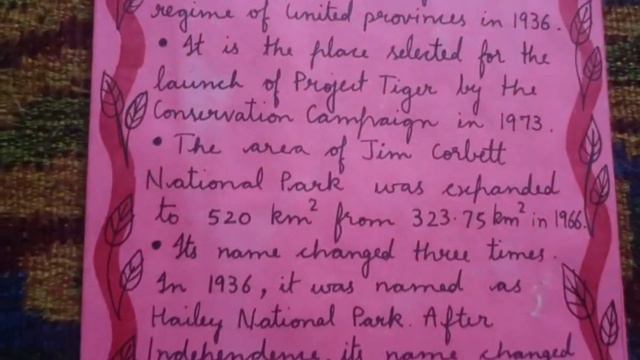 regime of United provinces in 1936.
• It is the place selected for the
launch of Project Tiger by the
Conservation Campaign in 1973.
• The area of Jim Corbett
National Park was expanded
to 520 km² from 323.75 km² in 1966.
• Its name changed three times.
In 1936, it was named as
Hailey National Park. After
Independence, its name changed